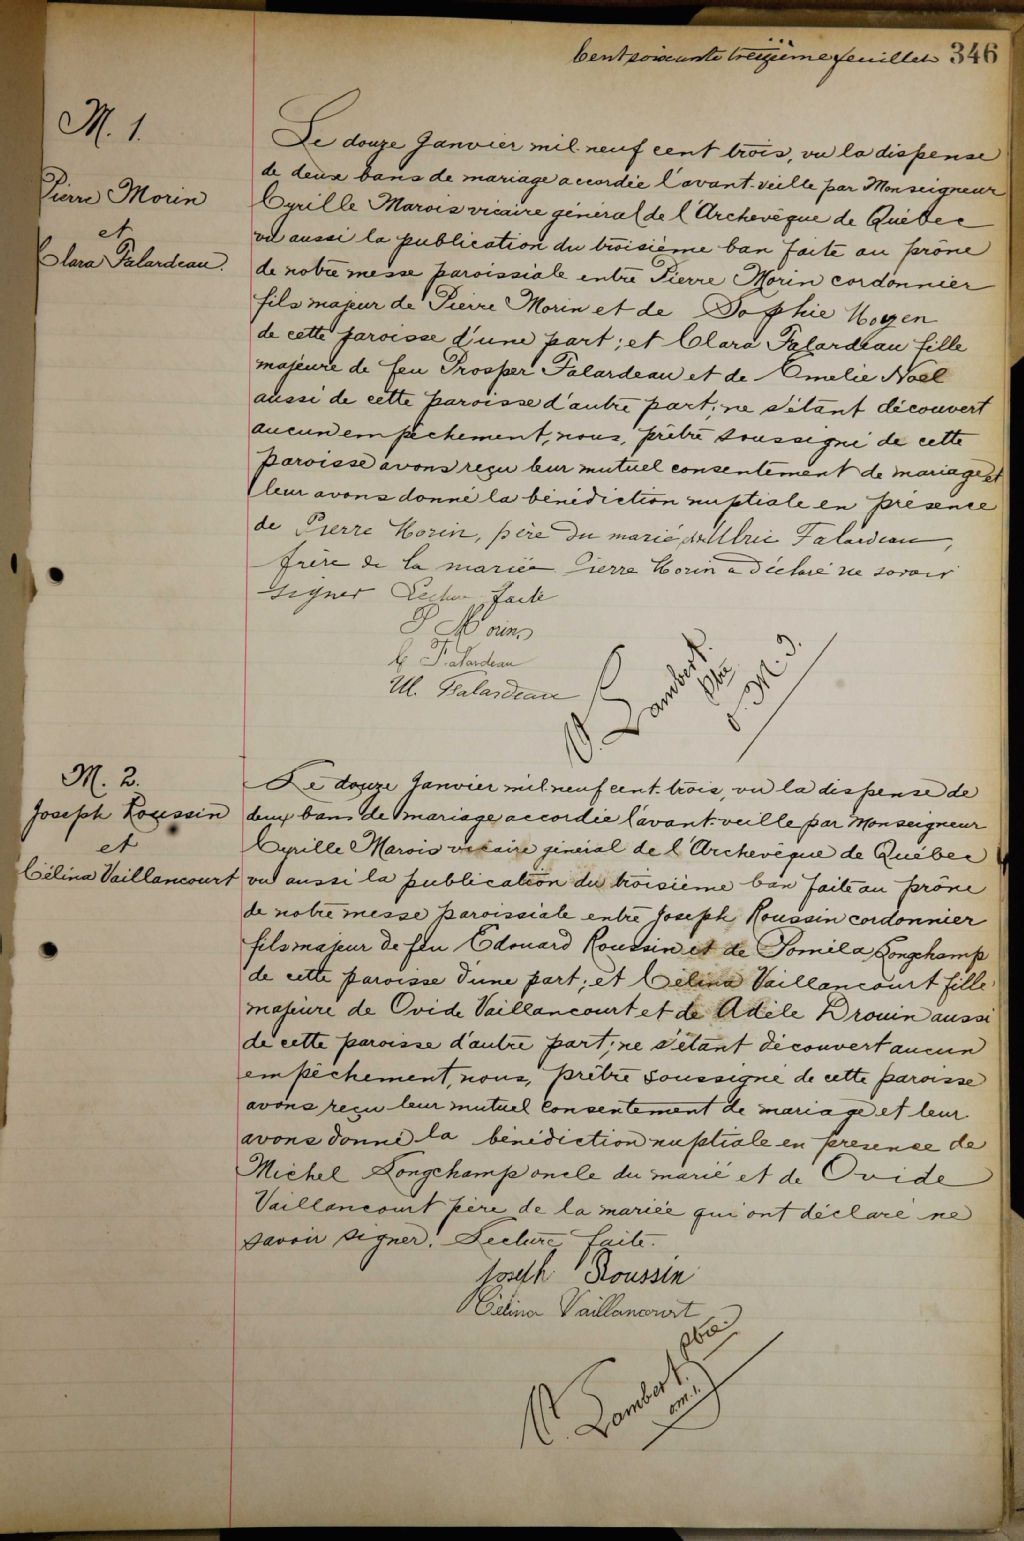 Cent soixante treizième feuillet 346
M. 1.
Pierre Morin
et
Clara Falardeau.
Le douze Janvier mil neuf cent trois, vu la dispense
de deux bans de mariage accordée l'avant-veille par Monseigneur
Cyrille Marois vicaire général de l'Archevêque de Québec
vu aussi la publication du troisième ban faite au prône
de notre messe paroissiale entre Pierre Morin cordonnier
fils majeur de Pierre Morin et de Sophie Noyen
de cette paroisse d'une part; et Clara Falardeau fille
majeure de feu Prosper Falardeau et de Emelie Noël
aussi de cette paroisse d'autre part; ne s'étant découvert
aucun empêchement, nous, prêtre soussigné de cette
paroisse avons reçu leur mutuel consentement de mariage et
leur avons donné la bénédiction nuptiale en présence
de Pierre Morin, père du marié, Ulric Falardeau,
frère de la mariée Pierre Morin a déclaré ne savoir
signer Lecture faite
P Morin
C Falardeau
Ul. Falardeau
V. Lambert. Ptre
O. M. I.
M. 2.
Joseph Roussin
et
Célina Vaillancourt
Le douze Janvier mil neuf cent trois, vu la dispense de
deux bans de mariage accordée l'avant-veille par Monseigneur
Cyrille Marois vicaire général de l'Archevêque de Québec
vu aussi la publication du troisième ban faite au prône
de notre messe paroissiale entre Joseph Roussin cordonnier
fils majeur de feu Edouard Roussin et de Poméla Longchamp
de cette paroisse d'une part; et Célina Vaillancourt fille
majeure de Ovide Vaillancourt et de Adèle Drouin aussi
de cette paroisse d'autre part; ne s'étant découvert aucun
empêchement, nous, prêtre soussigné de cette paroisse
avons reçu leur mutuel consentement de mariage et leur
avons donné la bénédiction nuptiale en présence de
Michel Longchamp oncle du marié et de Ovide
Vaillancourt père de la mariée qui ont déclaré ne
savoir signer. Lecture faite.
Joseph Roussin
Célina Vaillancourt
V. Lambert. Ptre.
o.m.i.